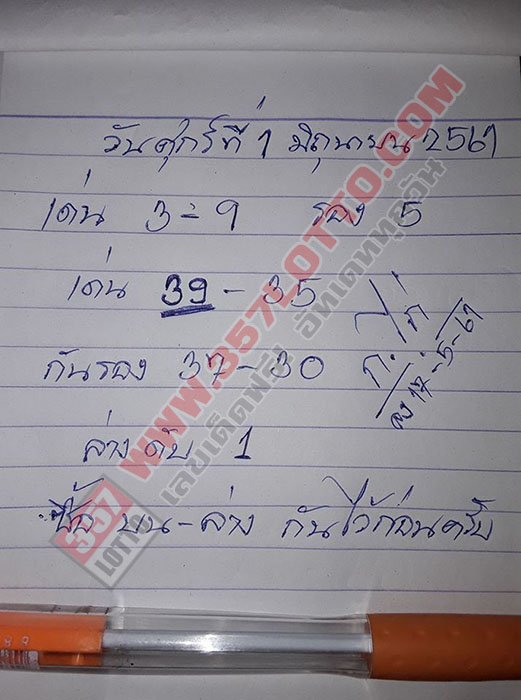 วันศุกร์ที่ 1 มิถุนายน 2561
เด่น 3=9 รอง 5
เด่น 39-35
กันรอง 37-30
ล่างดับ 1
ซื้อ บน-ล่าง กันไว้ก่อนครับ
17-5-61
WWW.357LOTTO.COM
เลขเด็ดฟรี อัทเดททุกวัน
357
LOTTO